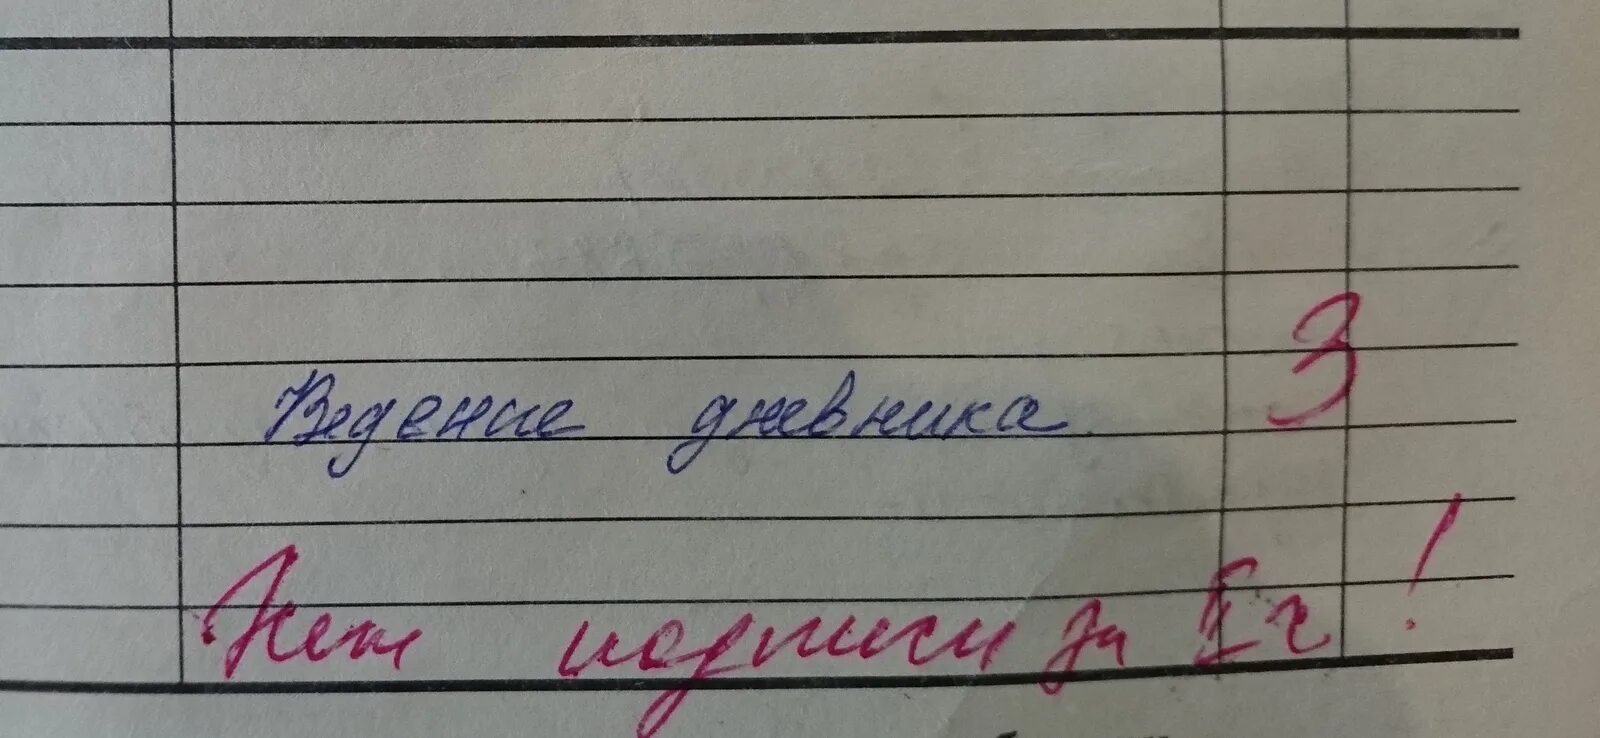 Ведение дневника 3
Нет подписи за I ч!